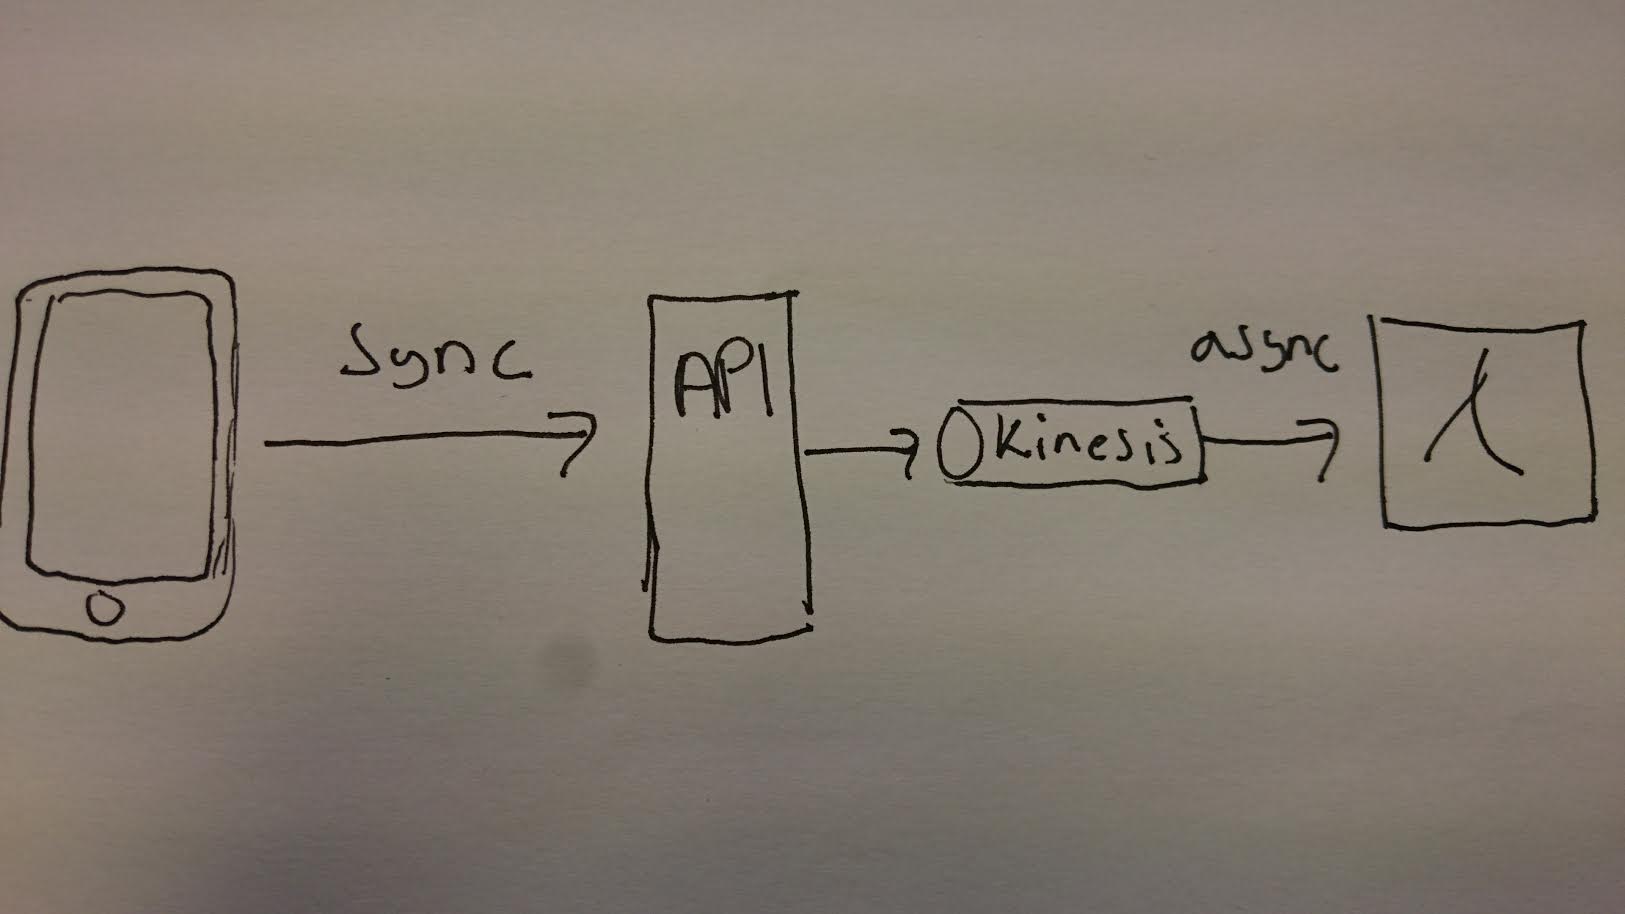 sync
API
Kinesis
async
λ